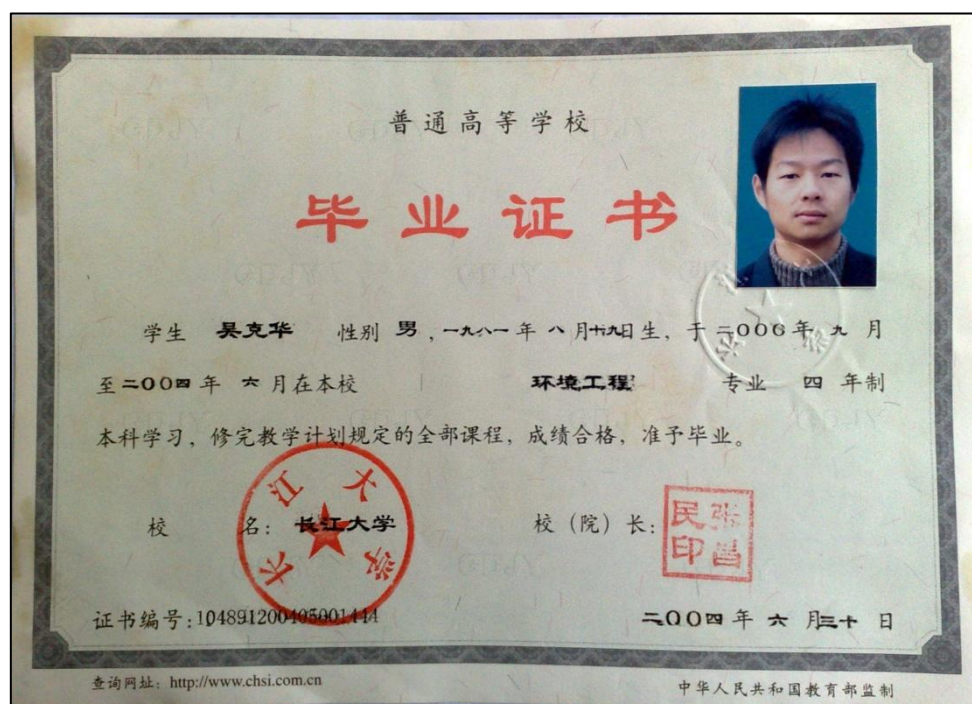 普通高等学校
毕业证书
学生 吴克华 性别 男，一九八一年 八月十九日生，于二000年 九月
至二00四年 六月在本校 环境工程 专业 四 年制
本科学习，修完教学计划规定的全部课程，成绩合格，准予毕业。
校 名：长江大学 校（院）长：
长江大学
张昌民印
证书编号：104891200405001444 二00四年 六 月三十 日
查询网址：http://www.chsi.com.cn 中华人民共和国教育部监制